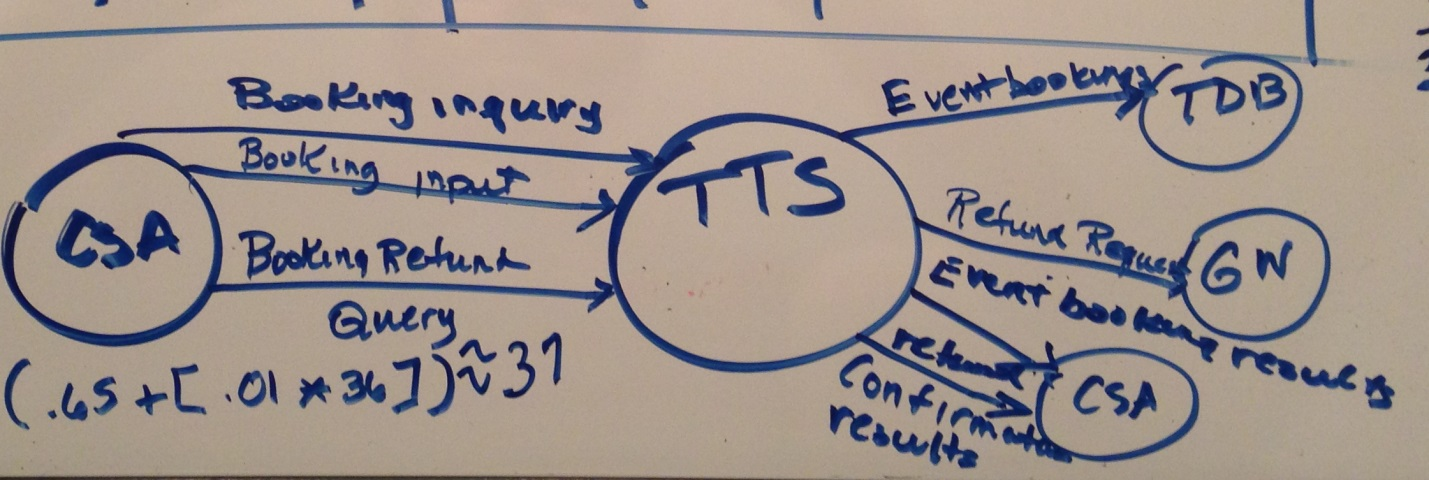 Booking inquiry
Booking input
CSA
Booking Refund
Query
(.65 + [.01 * 36]) ≈ 31
TTS
Event bookings
TDB
Refund Request
GW
Event booking results
refund
Confirmation
results
CSA